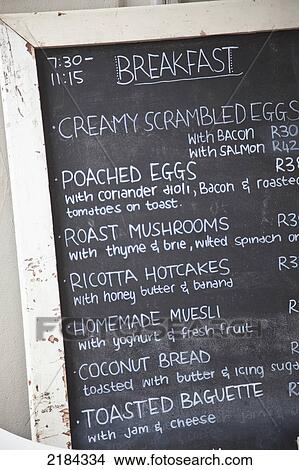 7:30-
11:15
BREAKFAST
· CREAMY SCRAMBLED EGGS
with BACON R30
with SALMON R42
· POACHED EGGS R3
with coriander aioli, Bacon & roasted
tomatoes on toast.
· ROAST MUSHROOMS R3
with thyme & brie, wilted spinach on
· RICOTTA HOTCAKES R
with honey butter & banana
· HOMEMADE MUESLI R
with yoghurt & fresh fruit
FOTOSEARCH
· COCONUT BREAD R
toasted with butter & icing suga
· TOASTED BAGUETTE R
with jam & cheese
2184334 www.fotosearch.com